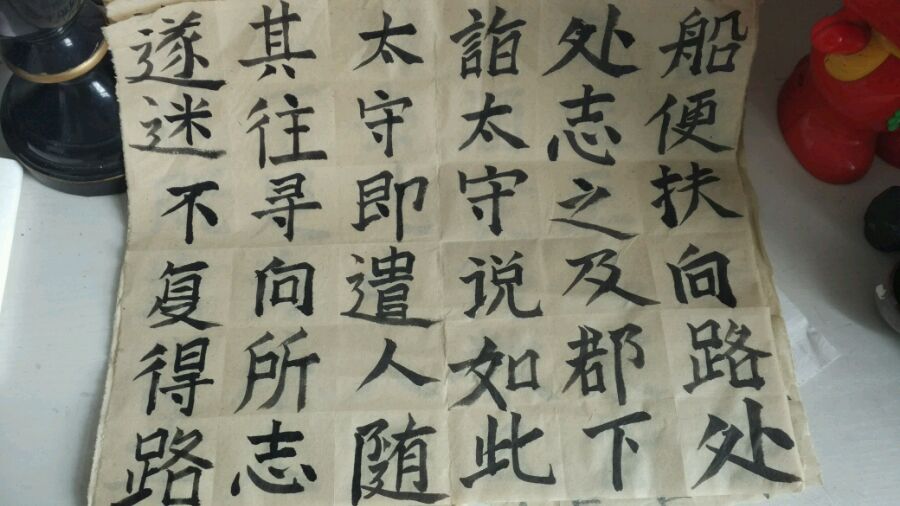 船便扶向路处
处志之及郡下
詣太守说如此
太守即遣人随
其往寻向所志
遂迷不复得路